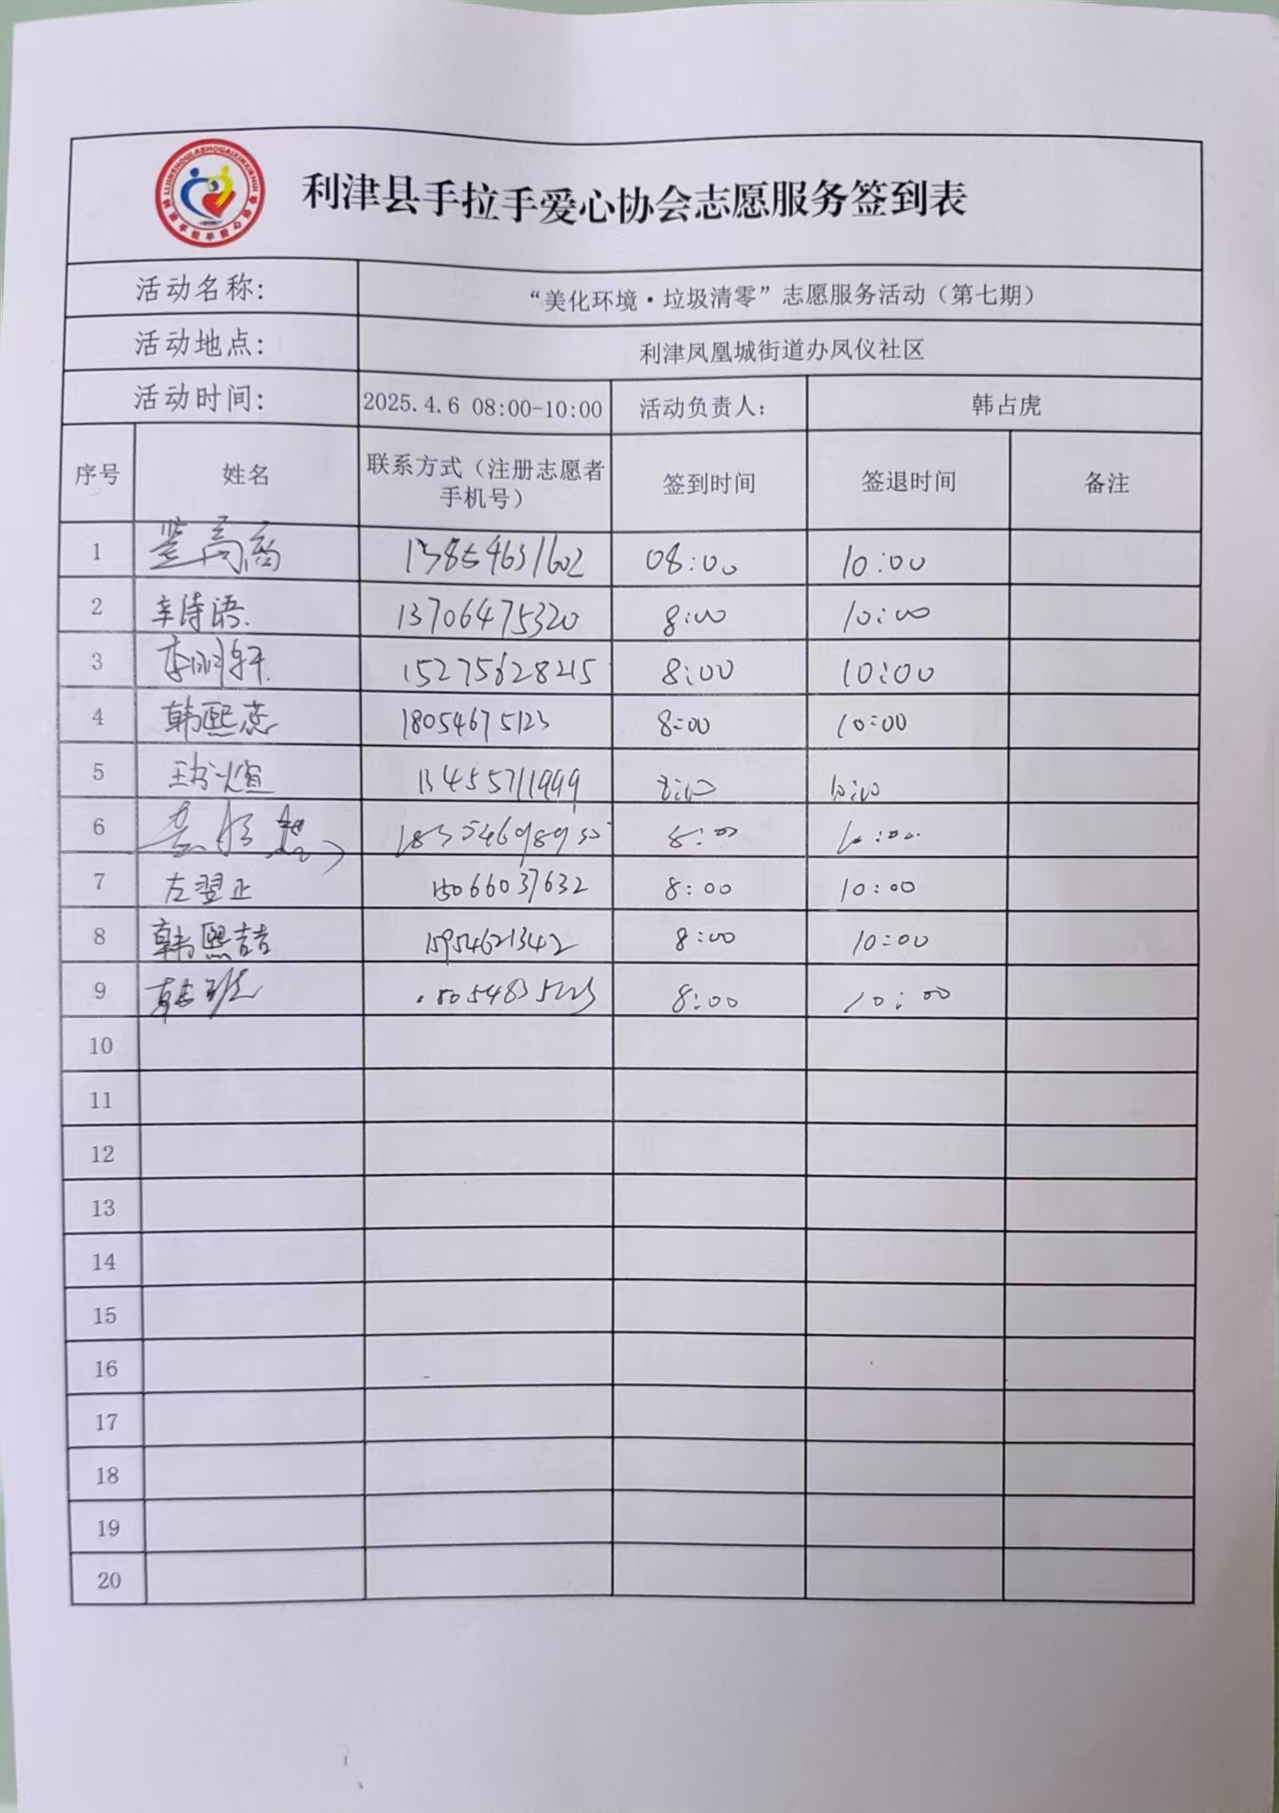 利津县手拉手爱心协会志愿服务签到表
活动名称: “美化环境·垃圾清零”志愿服务活动（第七期）
活动地点: 利津凤凰城街道办凤仪社区
活动时间: 2025.4.6 08:00-10:00 活动负责人: 韩占虎
序号 姓名 联系方式（注册志愿者手机号） 签到时间 签退时间 备注
1 13854631602 08:00 10:00
2 李诗语. 13706475320 8:00 10:00
3 李明轩. 15275628215 8:00 10:00
4 韩熙蕊 18054675123 8:00 10:00
5 王 煊 13455711999 8:00 10:00
6 8:00 10:00
7 左翌正 15066037632 8:00 10:00
8 韩熙喆 15954621342 8:00 10:00
9 韩 8:00 10:00
10
11
12
13
14
15
16
17
18
19
20